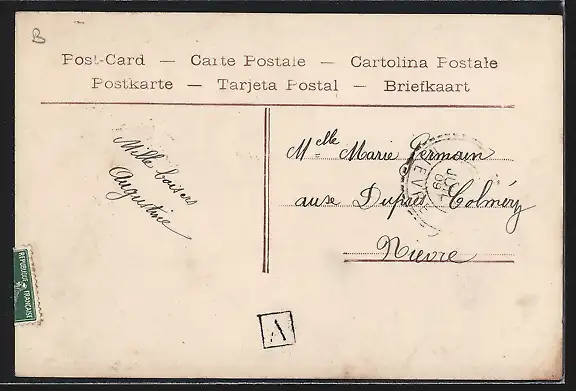 B
Post-Card — Carte Postale — Cartolina Postale
Postkarte — Tarjeta Postal — Briefkaart
Mille baisers
Augustine
Melle Marie Germain
aux Dupués Colméry
Nièvre
NIEVRE
JUIL
09
REPUBLIQUE FRANÇAISE
A